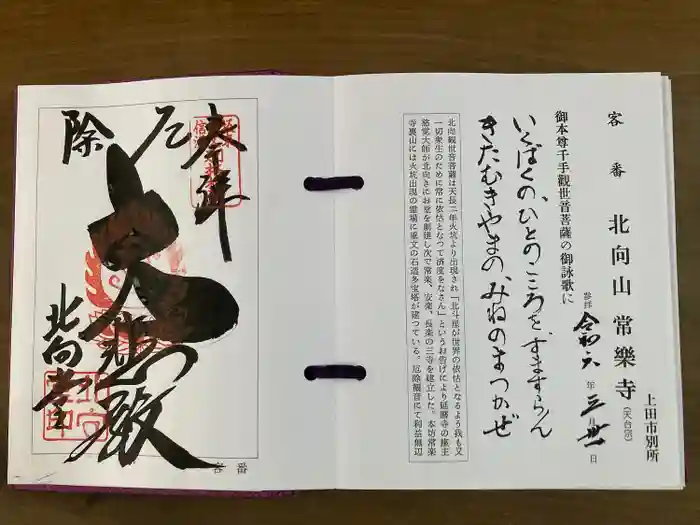 客番 北向山 常樂寺 (天台宗)
上田市別所
参拝 令和六年 三月 卅一日
御本尊千手觀世音菩薩の御詠歌に
いくばくの、ひとのこころを、すますらん
きたむきやまの、みねのまつかぜ
北向観世音菩薩は天長二年火坑より出現され「北斗星が世界の依怙となるよう我も又
一切衆生のために常に依怙となつて済度をなさん」というお告げにより延暦寺の座主
慈覚大師が北向きにお堂を創建し次で常楽、安楽、長楽の三寺を建立した。本坊常楽
寺裏山には火坑出現の霊場に重文の石造多宝塔が建つている。厄除観音にて利益無辺
奉拝
厄除
大悲殿
北向山
客番